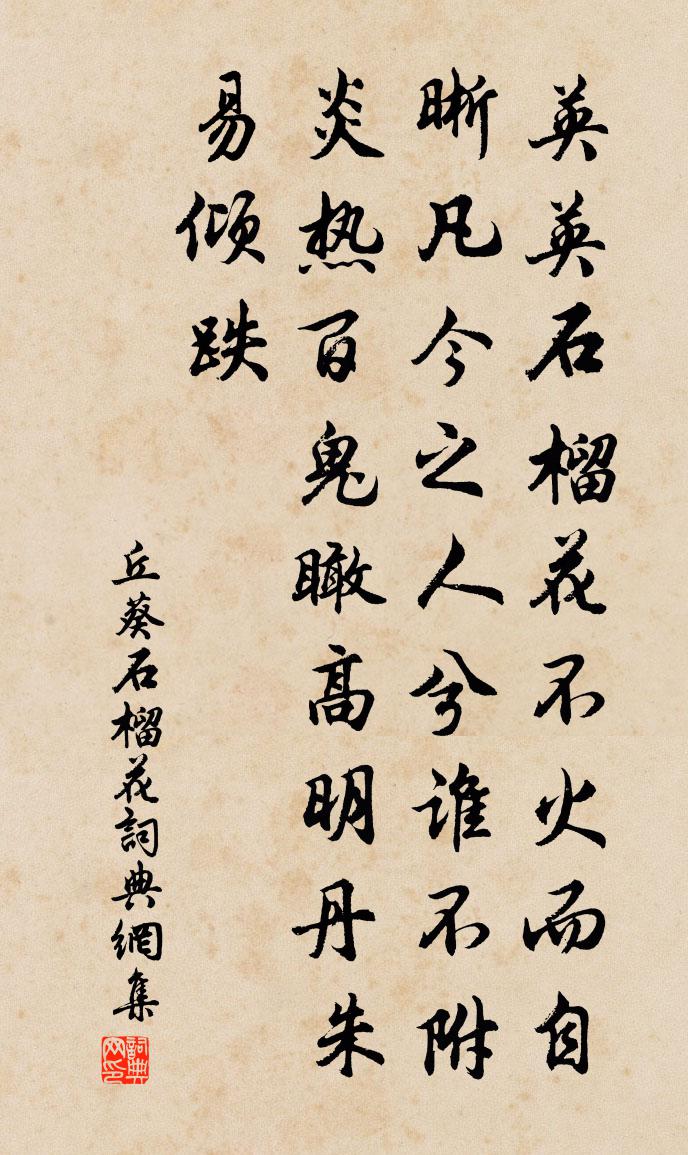 英英石榴花不火而自
晰凡今之人兮谁不附
炎热百鬼瞰高明丹朱
易倾跌
丘葵石榴花詞典網集
詞典
网印